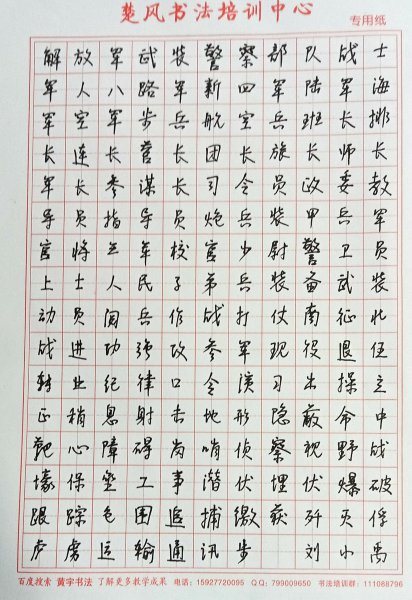 楚风书法培训中心
专用纸
解放军武装警察部队战士
军人八路军新四军陆军海
军空军步兵航空兵班长排
长连长营长团长旅长师长
军长参谋长司令员政委教
导员指导员炮兵装甲兵军
官将士军校官少尉警卫员
上士人民子弟兵装备武装
动员阅兵作战打仗南征北
战进功强攻参军现役退伍
转业纪律口令演习出操立
正稍息射击地形隐蔽命中
靶心障碍岗哨侦察视野战
壕保垒工事潜伏埋伏爆破
跟踪包围追捕缴获歼灭俘
虏虏运输通讯步 刘小禹
百度搜索 黄宇书法 了解更多教学成果 电话：15927720095 QQ：799009650 书法培训群：111088796